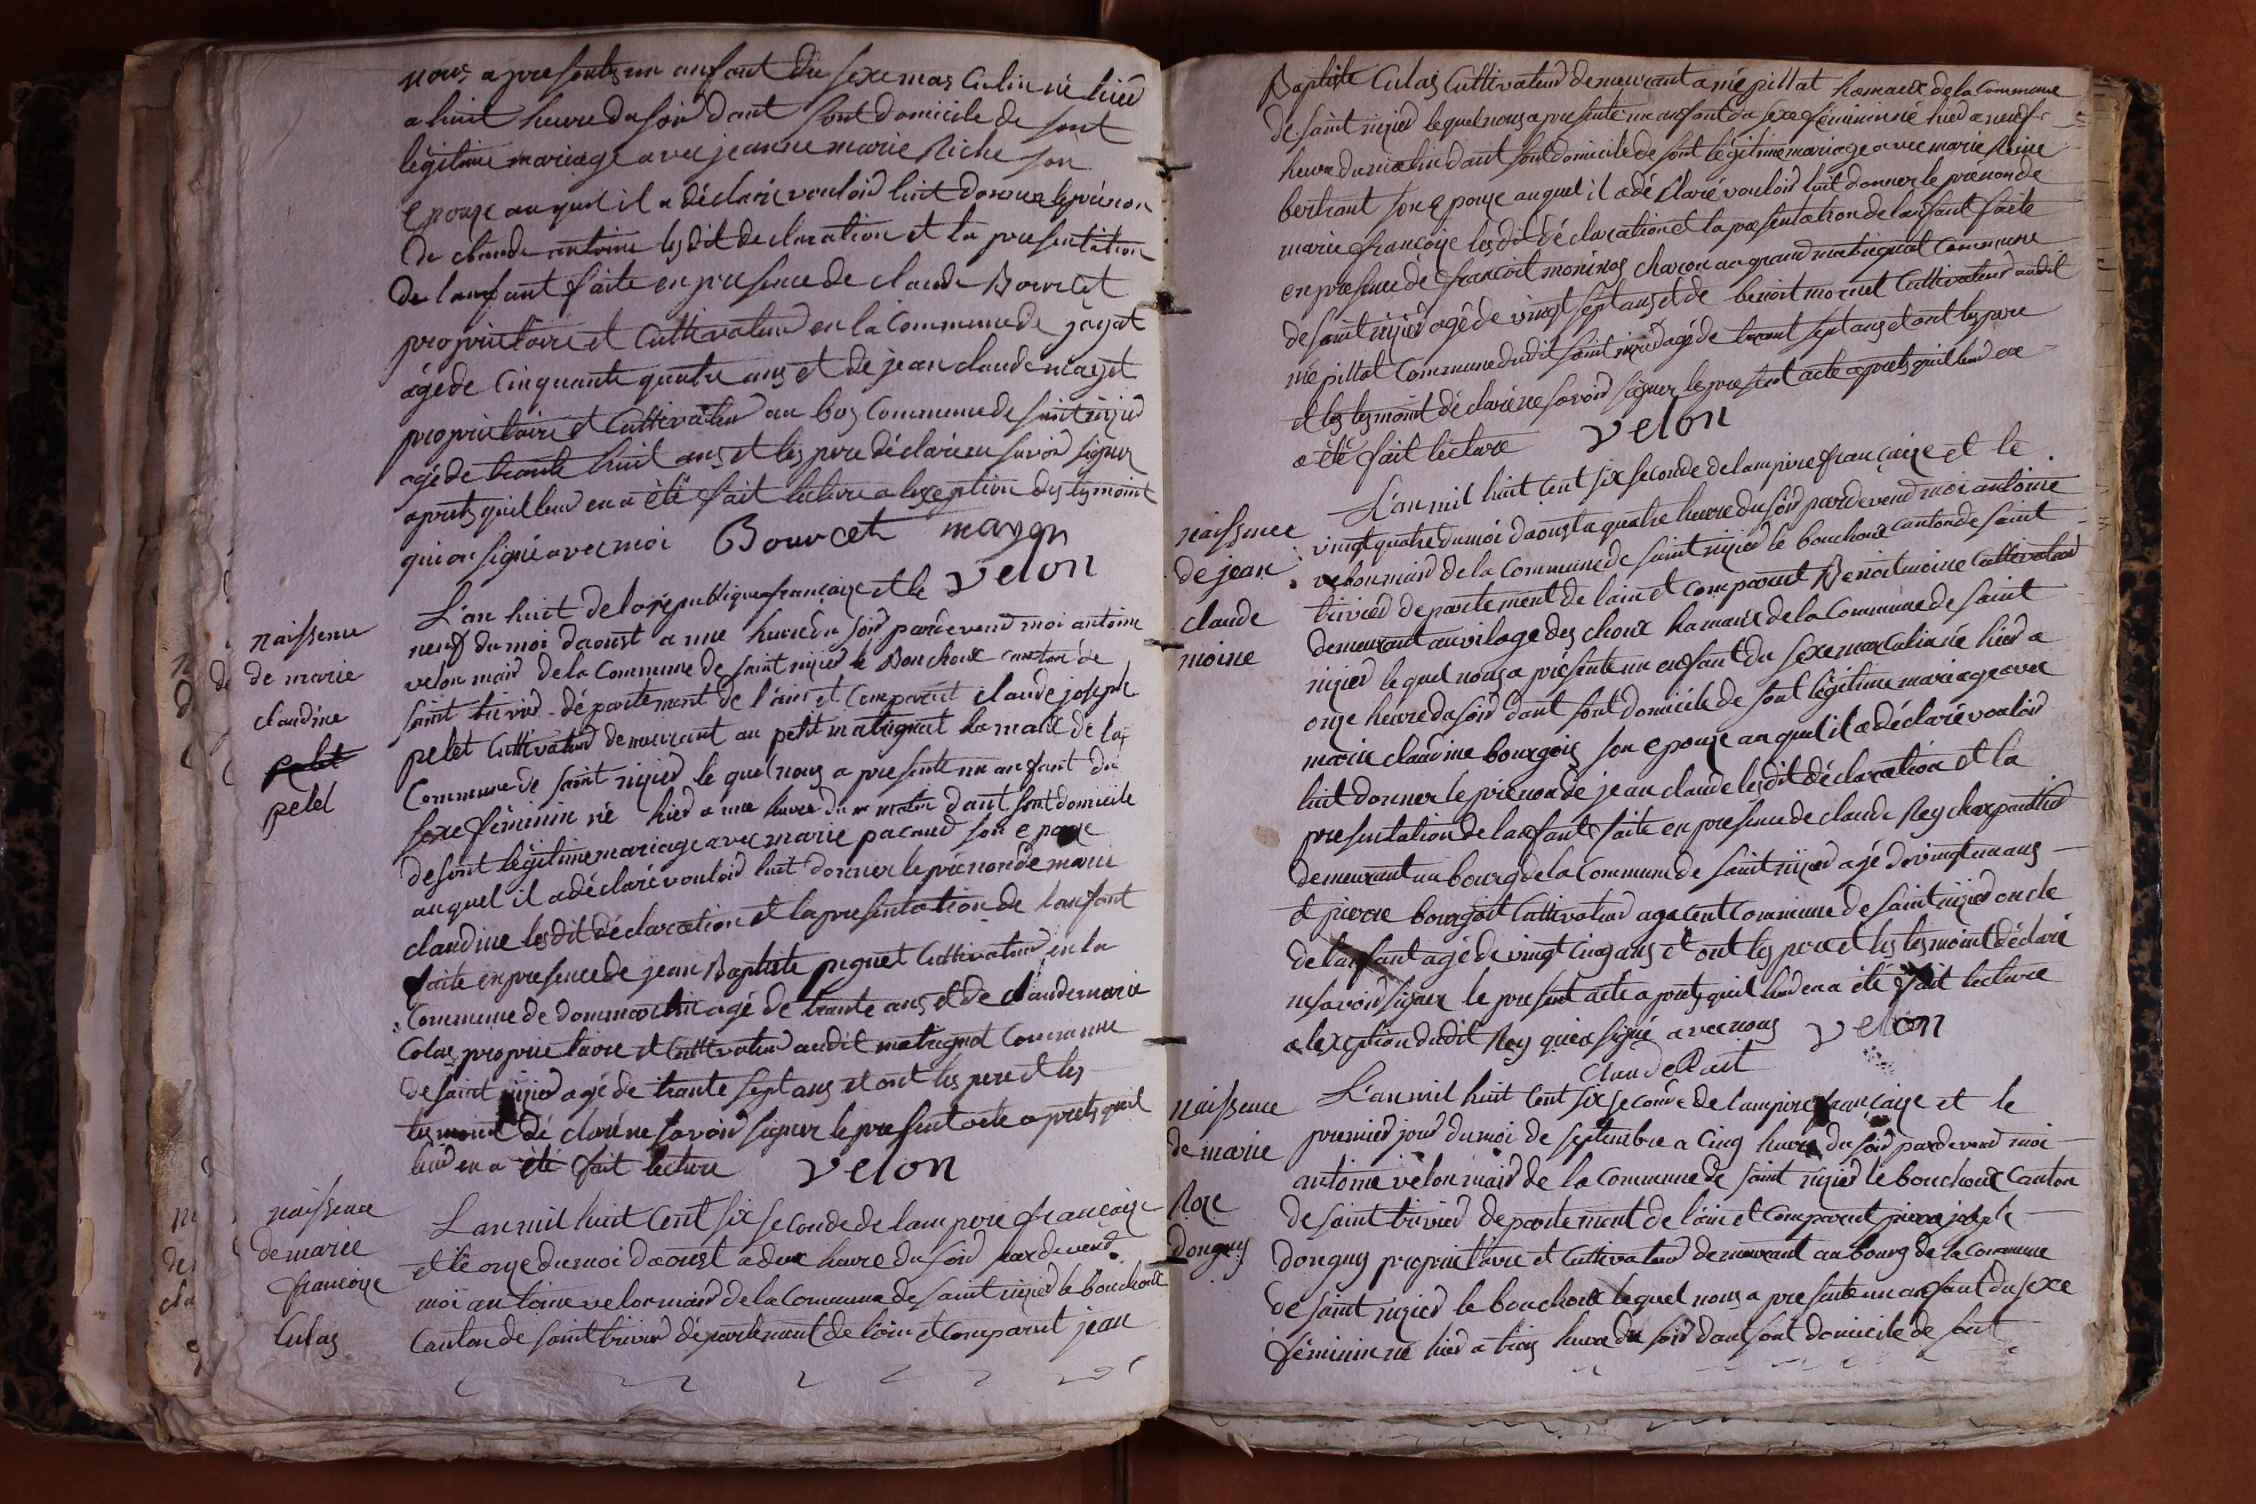 nous a presentez un anfant du sexe mas culin né hier
a huit heure du soir dant sont domicile de sont
légitime mariage avec jeanne marie Riche son
epouze auquel il a déclaré vouloir luit donner le prénon
de claude antoine lesdit declaration et la presentation
de lanfant faite en presence de claude Bourcet
proprietaire et Cultivateur en la Commune de jayat
agé de Cinquante quatre ans et de jean claude
proprietaire et Cultivateur au bos Commune de saint nizier
agé de trante huit ans et les pere déclaré ne savoir signer
aprets quil leur en a été fait lecture a lexseption des tesmoint
qui on signé avec moi Bourcet
velon
naissence
de marie
claudine
pelet
L'an huit de la république françaize et le
neuf du moi daoust a une heure du soir pardevend moi antoine
velon mair de la Commune de saint nizier le Bouchoux canton de
saint trivier département de l'ain et Comparut claude joseph
pelet Cultivateur demeurant au petit matrignat hamaux de la
Commune de saint nizier le quel nous a presente un anfant du
sexe féminin né hier a une heure du matin dant sont domicile
de sont légitime mariage avec marie pacaud son epouze
auquel il a déclaré vouloir luit donner le prénon de marie
claudine lesdit déclaration et la presentation de lanfant
faite en presence de jean Baptiste piguet Cultivateur en la
Commune de dommartin agé de trante ans et de claude marie
Colas proprietaire et Cultivateur audit matrignat Commune
de saint nizier agé de trante sept ans et ont les pere et les
tesmoint dé claré ne savoir signer le present acte aprets quil
leur en a été fait lecture velon
naissence
de marie
françoize
Culas
L'an mil huit Cent six seconde de lampire françaize
et le onze du moi daoust a deux heure du soir pardevend
moi antoine velon mair de la Commune de saint nizier le bouchoux
Canton de saint trivier département de l'ain et Comparut jean
Baptiste Culas Cultivateur demeurant a mépillat hamaux de la Commune
de saint nizier le quel nous a presente un anfant du sexe féminin né hier a neuf
heure du matin dant sont domicile de sont légitime mariage avec marie Reine
bertrant son epouze auquel il a dé claré vouloir luit donner le prénon de
marie françoize lesdit déclaration et la presentation de lanfant faite
en presence de françoit moninos charon au grand matrignat Commune
de saint nizier agé de vingt sept ans et de benoit mornet Cultivateur audit
mépillat Commune dudit saint nizier agé de trant sept ans et ont les pere
et les tesmoint déclaré ne savoir signer le present acte aprets quil leur en
a été fait lecture velon
naissence
de jean
claude
moine
L'an mil huit Cent six seconde de lampire françaize et le
vingt quatre du moi daoust a quatre heure du soir pardevend moi antoine
velon mair de la Commune de saint nizier le bouchoux canton de saint
trivier departement de lain et comparut Benoit moine Cultivateur
demeurant au vilage des choux hamaux de la Commune de saint
nizier le quel nous a présente un enfant du sexe masculin né hier a
onze heure du soir dant sont domicile de sont légitime mariage avec
marie claudine bourgois son epouze auquel il a déclaré vouloir
luit donner le prénon de jean claude lesdit déclaration et la
presentation de lanfant faite en presence de claude Rey charpantier
demeurant au bourg de la Commune de saint nizier agé de vingt un ans
et pierre bourgoit Cultivateur Commune de saint nizier oncle
de lanfant agé de vingt Cinq ans et ont les pere et les tesmoint déclaré
ne savoir signer le present acte aprets quil leur en a été fait lecture
a lexseption dudit Rey qui a signé avec nous velon
naissence
de marie
Roze
donguy
L'an mil huit Cent six seconde de lampire françaize et le
premier jour du moi de septembre a Cinq heure du soir pardevend moi
antoine velon mair de la Commune de saint nizier le bouchoux Canton
de saint trivier departement de l'ain et Comparut pierre joseph
donguy proprietaire et Cultivateur demeurant au bourg de la commune
de saint nizier le bouchoux lequel nous a presente un anfant du sexe
féminin né hier a trois heure du soir dant sont domicile de sont